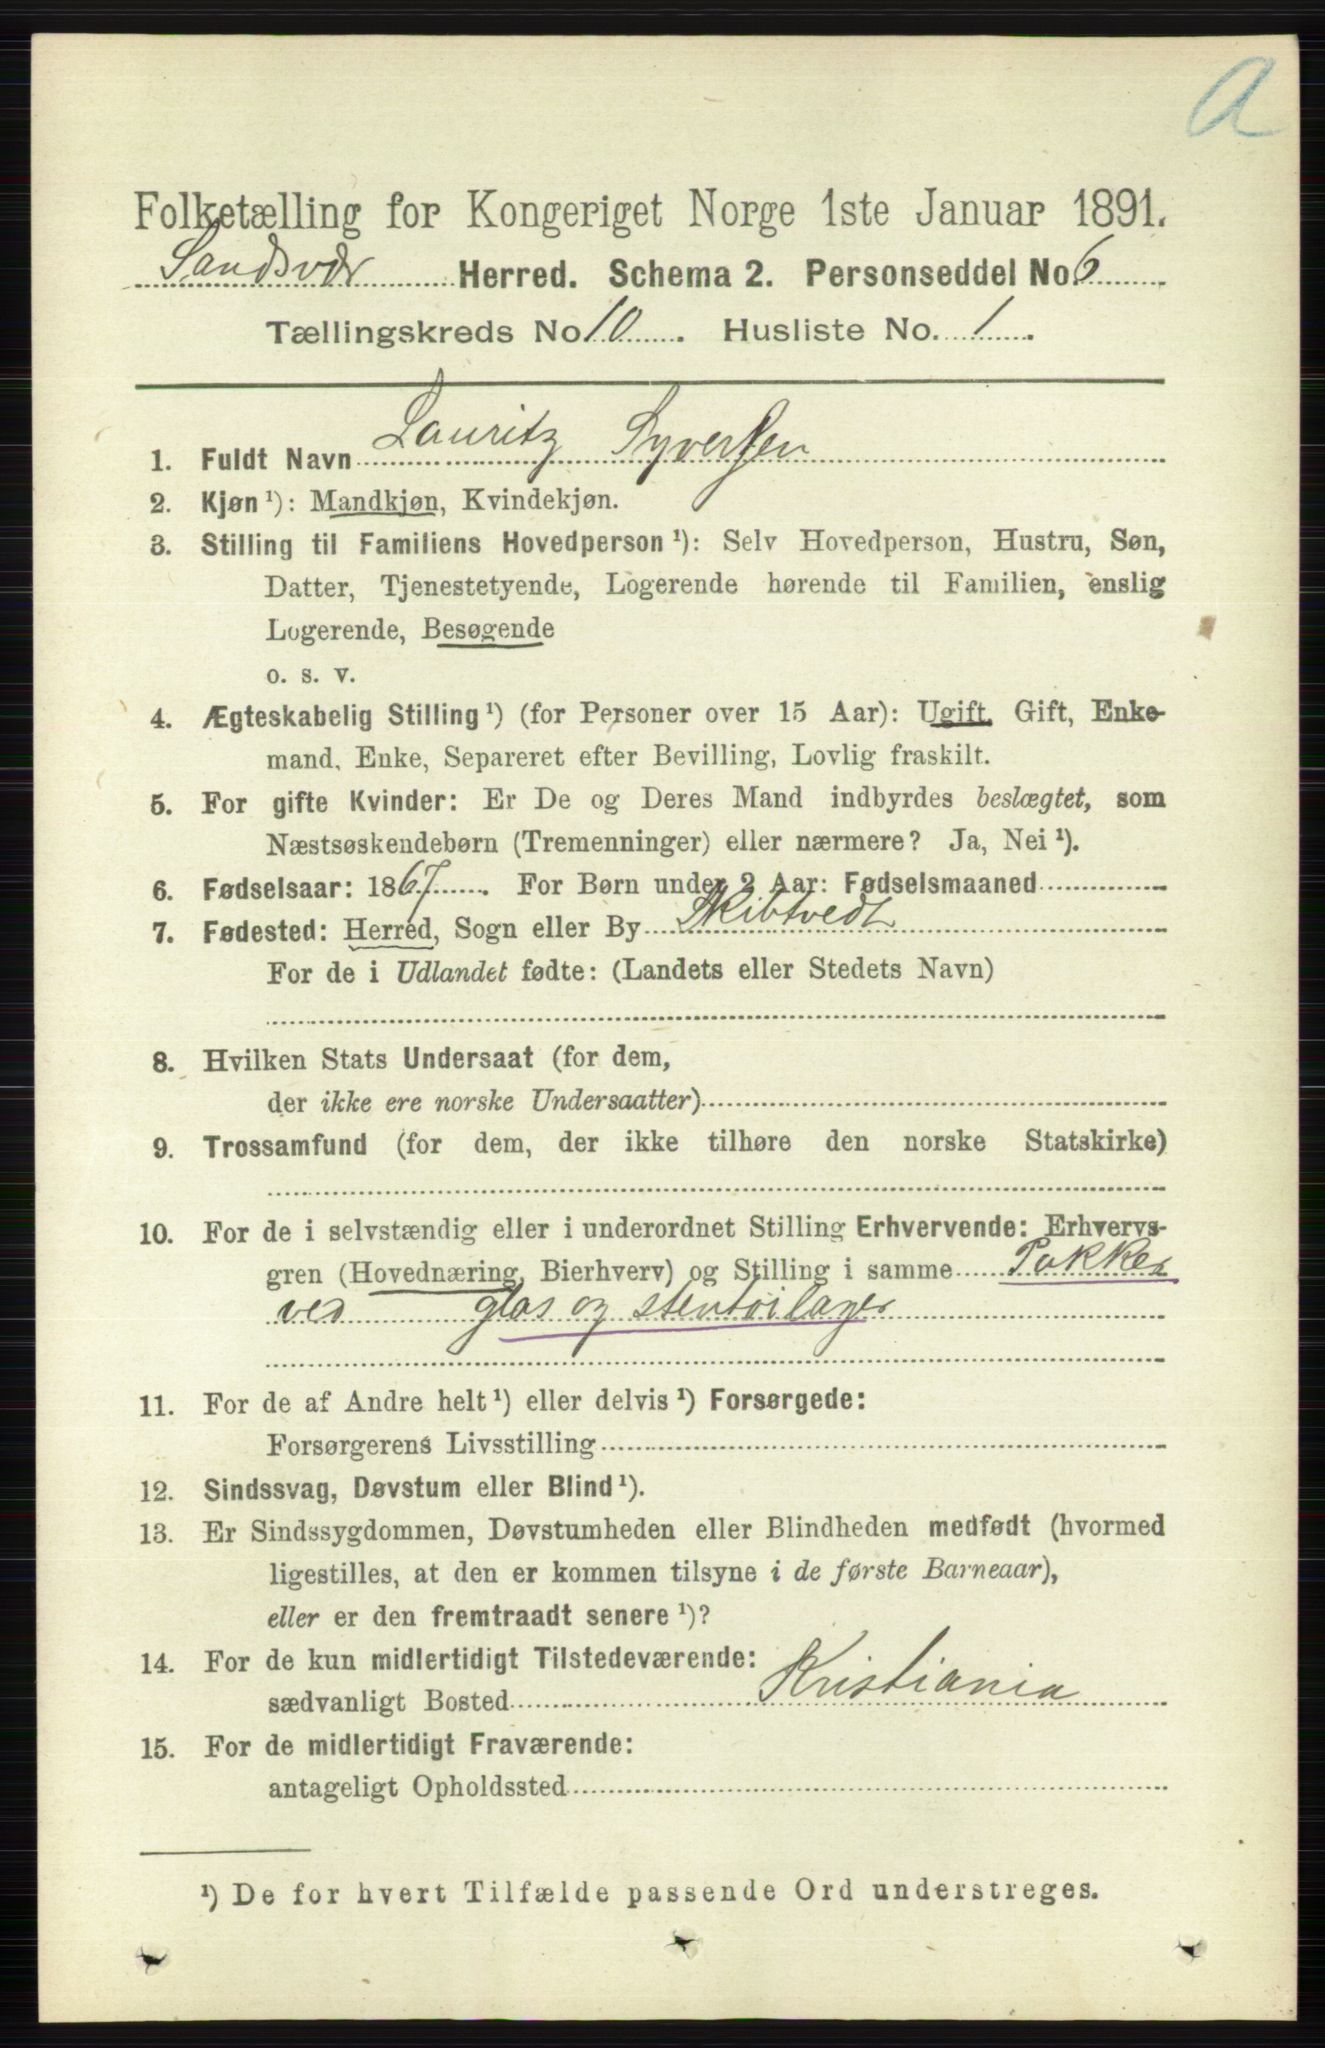 A
Folketælling for Kongeriget Norge 1ste Januar 1891.
Sandsvær Herred. Schema 2. Personseddel No. 6
Tællingskreds No. 10. Husliste No. 1.
1. Fuldt Navn Lauritz Syversen
2. Kjøn ¹): Mandkjøn, Kvindekjøn.
3. Stilling til Familiens Hovedperson ¹): Selv Hovedperson, Hustru, Søn,
Datter, Tjenestetyende, Logerende hørende til Familien, enslig
Logerende, Besøgende
o. s. v.
4. Ægteskabelig Stilling ¹) (for Personer over 15 Aar): Ugift, Gift, Enke-
mand, Enke, Separeret efter Bevilling, Lovlig fraskilt.
5. For gifte Kvinder: Er De og Deres Mand indbyrdes beslægtet, som
Næstsøskendebørn (Tremenninger) eller nærmere? Ja, Nei ¹).
6. Fødselsaar: 1867. For Børn under 2 Aar: Fødselsmaaned
7. Fødested: Herred, Sogn eller By Skibtvedt
For de i Udlandet fødte: (Landets eller Stedets Navn)
8. Hvilken Stats Undersaat (for dem,
der ikke ere norske Undersaatter)
9. Trossamfund (for dem, der ikke tilhøre den norske Statskirke)
10. For de i selvstændig eller i underordnet Stilling Erhvervende: Erhvervs-
gren (Hovednæring, Bierhverv) og Stilling i samme Pakker
ved glas og stentøilager
11. For de af Andre helt ¹) eller delvis ¹) Forsørgede:
Forsørgerens Livsstilling
12. Sindssvag, Døvstum eller Blind ¹).
13. Er Sindssygdommen, Døvstumheden eller Blindheden medfødt (hvormed
ligestilles, at den er kommen tilsyne i de første Barneaar),
eller er den fremtraadt senere ¹)?
14. For de kun midlertidigt Tilstedeværende:
sædvanligt Bosted Kristiania
15. For de midlertidigt Fraværende:
antageligt Opholdssted
¹) De for hvert Tilfælde passende Ord understreges.